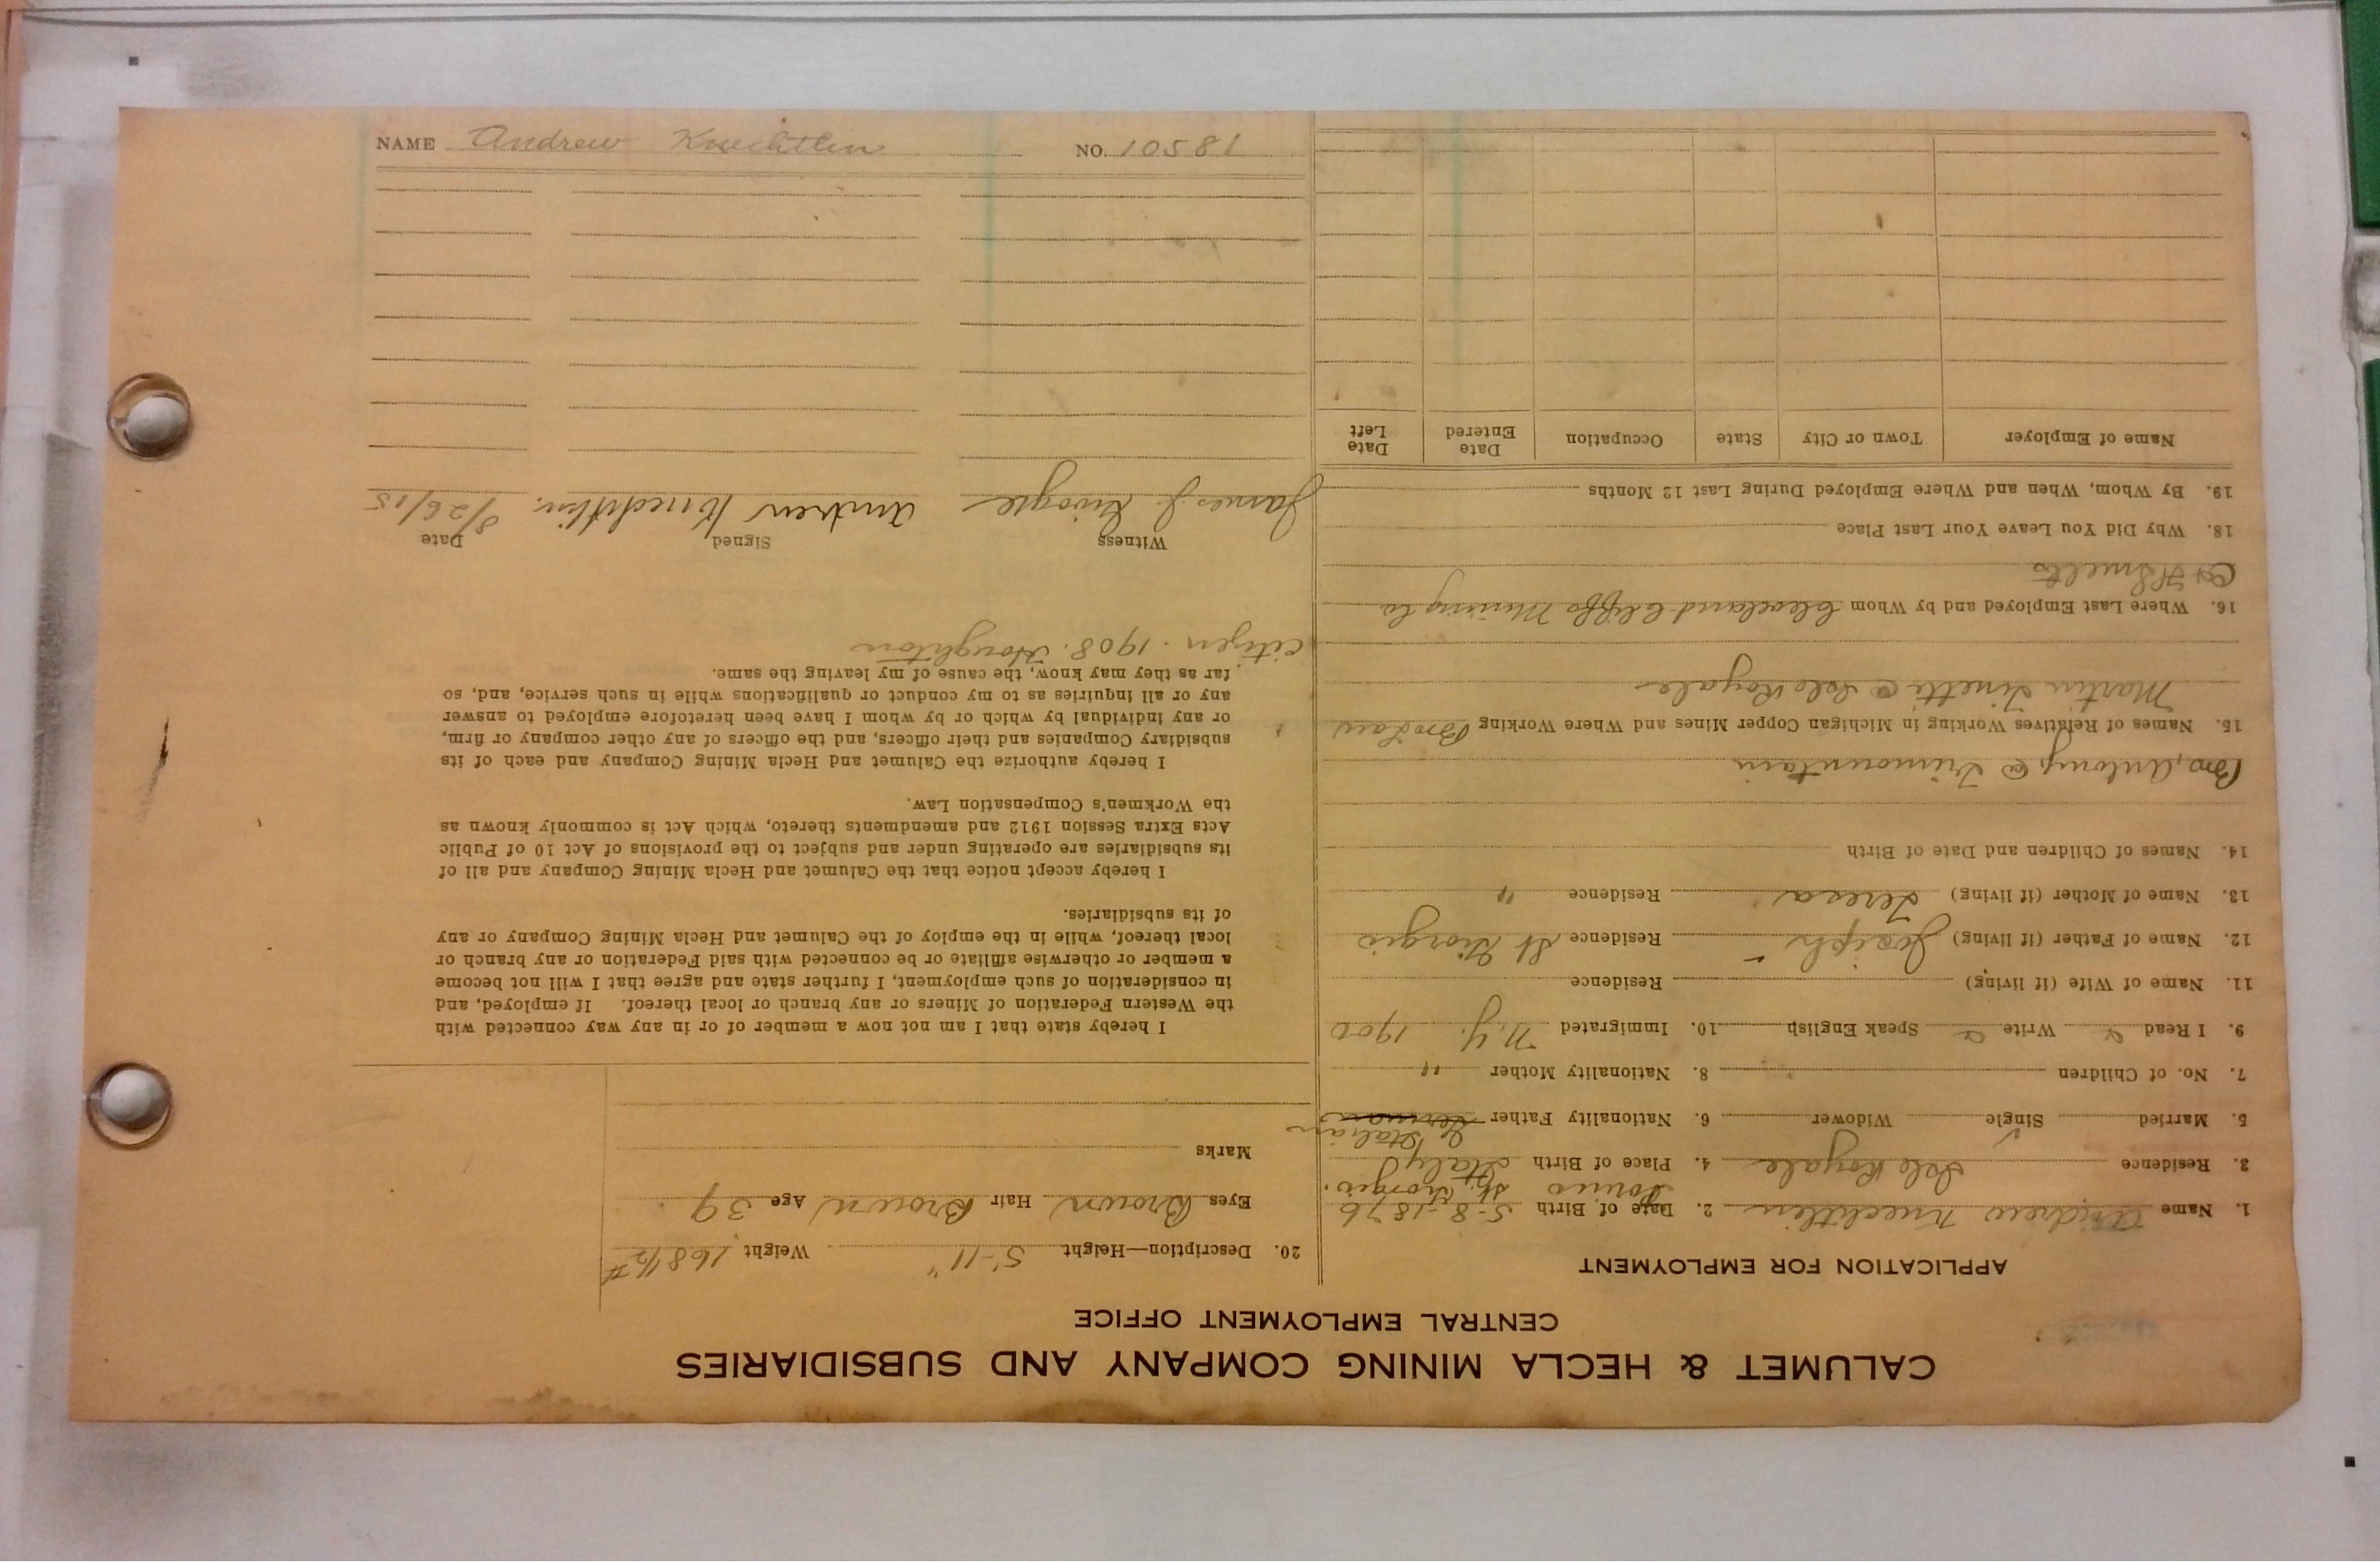 CALUMET & HECLA MINING COMPANY AND SUBSIDIARIES
CENTRAL EMPLOYMENT OFFICE
APPLICATION FOR EMPLOYMENT
1. Name Andrew Knechtlin 2. Date of Birth 5-8-1876
Torino St. Giorgio.
3. Residence Isle Royale 4. Place of Birth Italy
Italian
5. Married Single ✓ Widower 6. Nationality Father German
7. No. of Children 8. Nationality Mother "
9. I Read Write Speak English 10. Immigrated N.Y. 1900
11. Name of Wife (if living) Residence
12. Name of Father (if living) Joseph Residence St Giorgio
13. Name of Mother (if living) Teresa Residence "
14. Names of Children and Date of Birth
Bro, Antony @ Trimountain
15. Names of Relatives Working in Michigan Copper Mines and Where Working Bro Law
Martin Tinetti @ Isle Royale
16. Where Last Employed and by Whom Cleveland Cliffs Mining Co
18. Why Did You Leave Your Last Place
19. By Whom, When and Where Employed During Last 12 Months
Name of Employer Town or City State Occupation Date Entered Date Left
20. Description—Height 5-11" Weight 168 1/2 #
Eyes Brown Hair Brown Age 39
Marks
I hereby state that I am not now a member of or in any way connected with
the Western Federation of Miners or any branch or local thereof. If employed, and
in consideration of such employment, I further state and agree that I will not become
a member or otherwise affiliate or be connected with said Federation or any branch or
local thereof, while in the employ of the Calumet and Hecla Mining Company or any
of its subsidiaries.
I hereby accept notice that the Calumet and Hecla Mining Company and all of
its subsidiaries are operating under and subject to the provisions of Act 10 of Public
Acts Extra Session 1912 and amendments thereto, which Act is commonly known as
the Workmen's Compensation Law.
I hereby authorize the Calumet and Hecla Mining Company and each of its
subsidiary Companies and their officers, and the officers of any other company or firm,
or any individual by which or by whom I have been heretofore employed to answer
any or all inquiries as to my conduct or qualifications while in such service, and, so
far as they may know, the cause of my leaving the same.
Citizen. 1908. Houghton
Witness Signed Date
James J. Andrew Knechtlin. 8/26/15
NAME Andrew Knechtlin NO. 10581